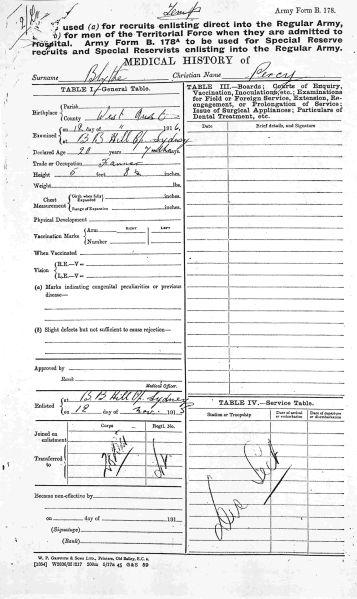 Temp
Army Form B. 178.
used (a) for recruits enlisting direct into the Regular Army,
(b) for men of the Territorial Force when they are admitted to
Hospital. Army Form B. 178A to be used for Special Reserve
recruits and Special Reservists enlisting into the Regular Army.
MEDICAL HISTORY of
Surname Blythe Christian Name Percy
TABLE I.—General Table.
Birthplace Parish
County West
Examined at B B Hill Off. Sydney
on 18 day of 1916
Declared Age 20 years 7 months
Trade or Occupation Farmer
Height feet inches.
Weight lbs.
Chest Measurement Girth when fully Expanded inches.
Range of Expansion inches.
Physical Development
RIGHT LEFT
Vaccination Marks Arm
Number
When Vaccinated
Vision R.E.—V=
L.E.—V=
(a) Marks indicating congenital peculiarities or previous
disease—
(b) Slight defects but not sufficient to cause rejection—
Approved by
Rank
Medical Officer.
Enlisted at B B Hill Off. Sydney
on 18 day of Nov. 191
Corps Regtl. No.
Joined on enlistment
Transferred to
Became non-effective by
on day of 191
(Signature)
(Rank)
TABLE III.—Boards; Courts of Enquiry,
Vaccination, Inoculations, etc.; Examinations
for Field or Foreign Service, Extension, Re-
engagement, or Prolongation of Service;
Issue of Surgical Appliances; Particulars of
Dental Treatment, etc.
Date Brief details, and Signature
TABLE IV.—Service Table.
Station or Troopship Date of arrival or embarkation Date of departure or disembarkation
W. P. GRIFFITH & SONS LTD., Printers, Old Bailey, E.C. 4.